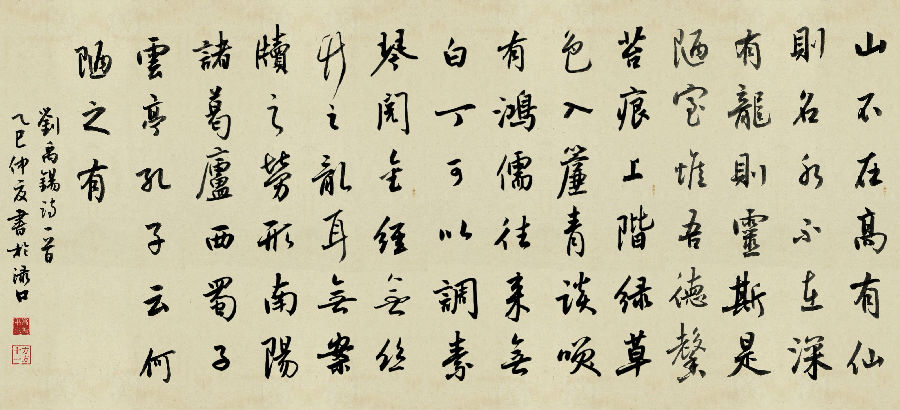 山不在高有仙
則名水不在深
有龍則靈斯是
陋室惟吾德馨
苔痕上階緑草
色入簾青談咲
有鴻儒往來無
白丁可以調素
琴閱金經無絲
竹之亂耳無案
牘之勞形南陽
諸葛廬西蜀子
雲亭孔子云何
陋之有
劉禹錫詩一首
乙巳仲夏書於淥口